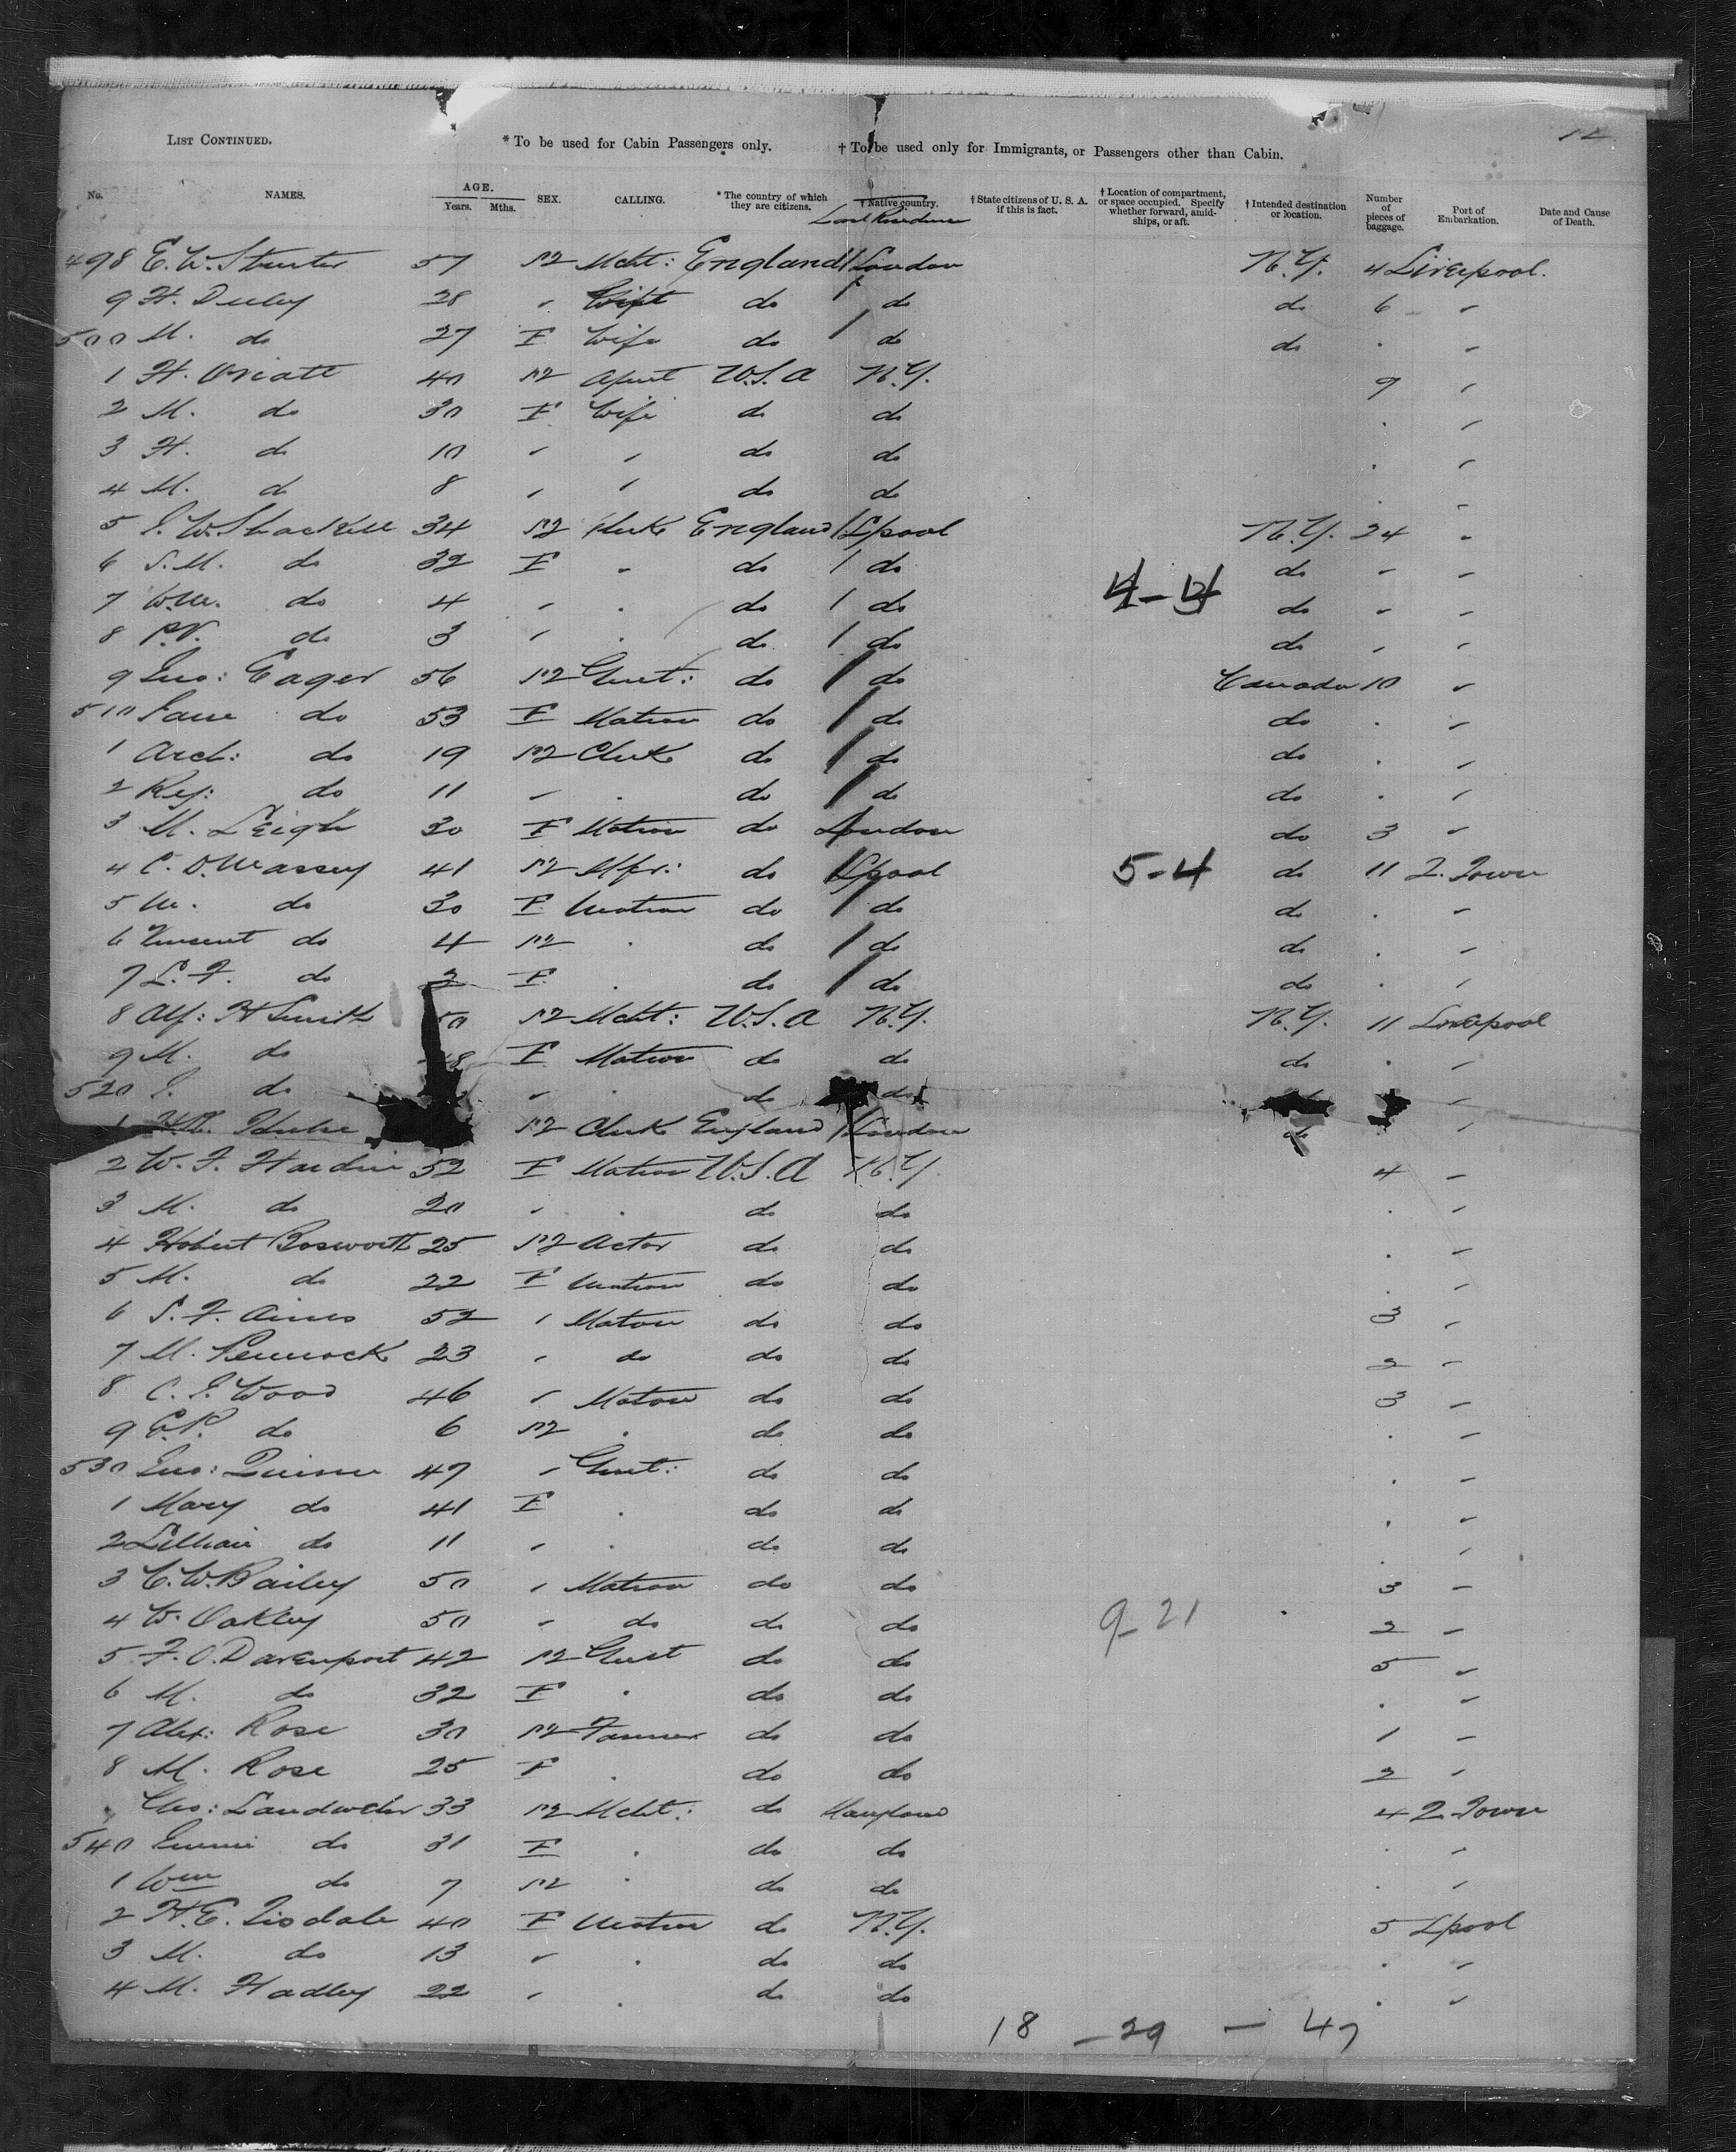 12
LIST CONTINUED. * To be used for Cabin Passengers only. † To be used only for Immigrants, or Passengers other than Cabin.
No. NAMES. AGE. Years. Mths. SEX. CALLING. * The country of which they are citizens. † Native country. Last Residence † State citizens of U. S. A. if this is fact. † Location of compartment, or space occupied. Specify whether forward, amidships, or aft. † Intended destination or location. Number of pieces of baggage. Port of Embarkation. Date and Cause of Death.
498 E. W. 57 M Mcht: England / London N.Y. 4 Liverpool.
9 H. 28 " do / do do 6 "
500 M. do 27 F Wife do / do do . "
1 H. 40 M Agent U.S.A N.Y. 9 "
2 M. do 30 F Wife do do . "
3 H. do 10 " " do do . "
4 M. do 8 " " do do . "
5 J. W. Shackell 34 M Clerk England / Lpool N.Y. 24 "
6 S. M. do 32 F " do / do do " "
7 Wm. do 4 " . do / do 4-4 do " "
8 P.V. do 3 " . do / do do " "
9 Jno: Eager 56 M Gent: do / do Canada 10 "
510 Jane do 53 F Matron do / do do . "
1 Arch: do 19 M Clerk do / do do . "
2 Reg: do 11 " . do / do do . "
3 M. Leigh 30 F Matron do London do 3 "
4 C. O. Massey 41 M Mfr: do / Lpool 5-4 do 11 Q. Town
5 M. do 30 F Matron do / do do . "
6 Vincent do 4 M . do / do do . "
7 L. F. do 2 F . do / do do . "
8 Alf: H Smith 50 M Mcht: U.S.A N.Y. N.Y. 11 Liverpool
9 M. do 48 F Matron do do do . "
520 J. do " . do do "
1 M Clerk England / London do "
2 W. F. Hardin 52 F Matron U.S.A N.Y. 4 "
3 M. do 20 " . do do . "
4 Hobart Bosworth 25 M Actor do do . "
5 M. do 22 F Matron do do . "
6 S. F. Aines 52 " Matron do do 3 "
7 M. Pennock 23 " do do do 2 "
8 C. J. Wood 46 " Matron do do 3 "
9 E.P. do 6 M . do do . "
530 Jno: Quinn 47 " Gent: do do . "
1 Mary do 41 F . do do . "
2 Lillian do 11 " . do do . "
3 C. W. Bailey 50 " Matron do do 3 "
4 W. Oakley 50 " do do do 9-21 2 "
5 F. O. Davenport 42 M Gent do do 5 "
6 M. do 32 F . do do . "
7 Alex: Rose 30 M Farmer do do 1 "
8 M. Rose 25 F . do do 2 "
. Chs: Landwehr 33 M Mcht: do Maryland 4 Q. Town
540 Emmi do 31 F . do do . "
1 Wm do 7 M . do do . "
2 H. E. Tisdale 40 F Matron do N.Y. 5 Lpool
3 M. do 13 " . do do . "
4 M. Hadley 22 " . do do . "
18 - 29 - 47